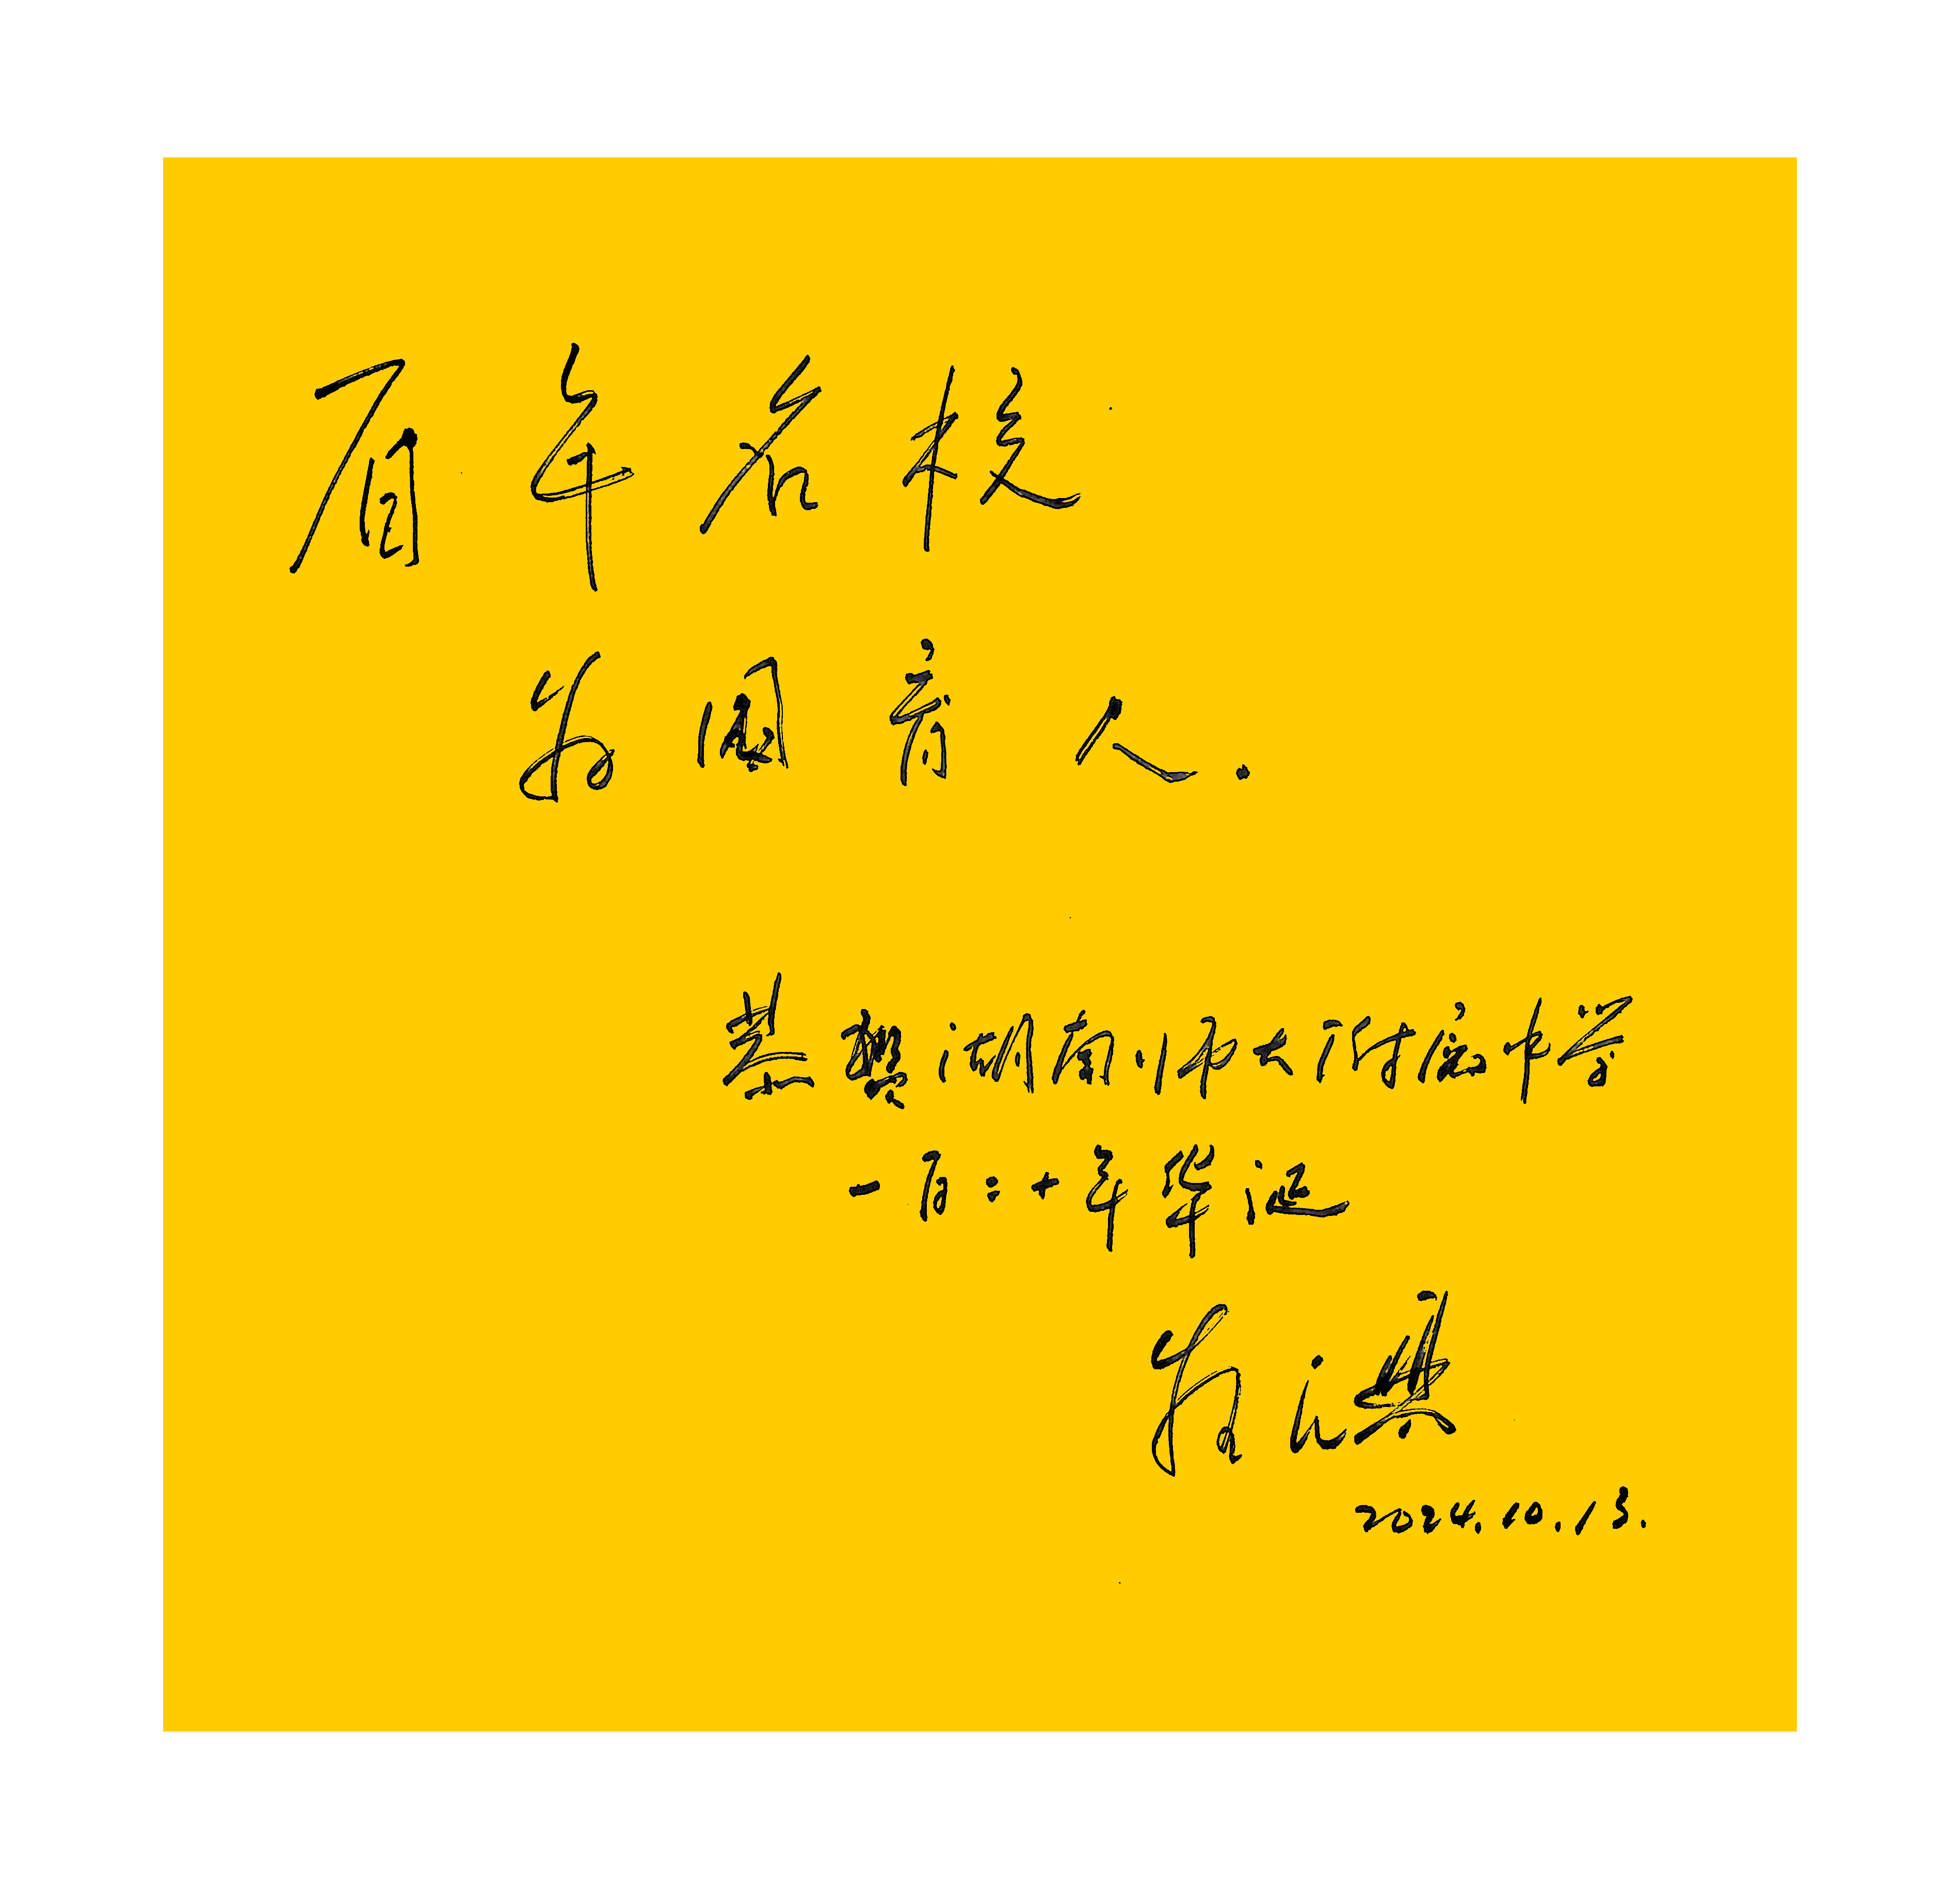 百年名校
为国育人.
恭贺湖南师大附属中学
一百二十年华诞
2024.10.13.